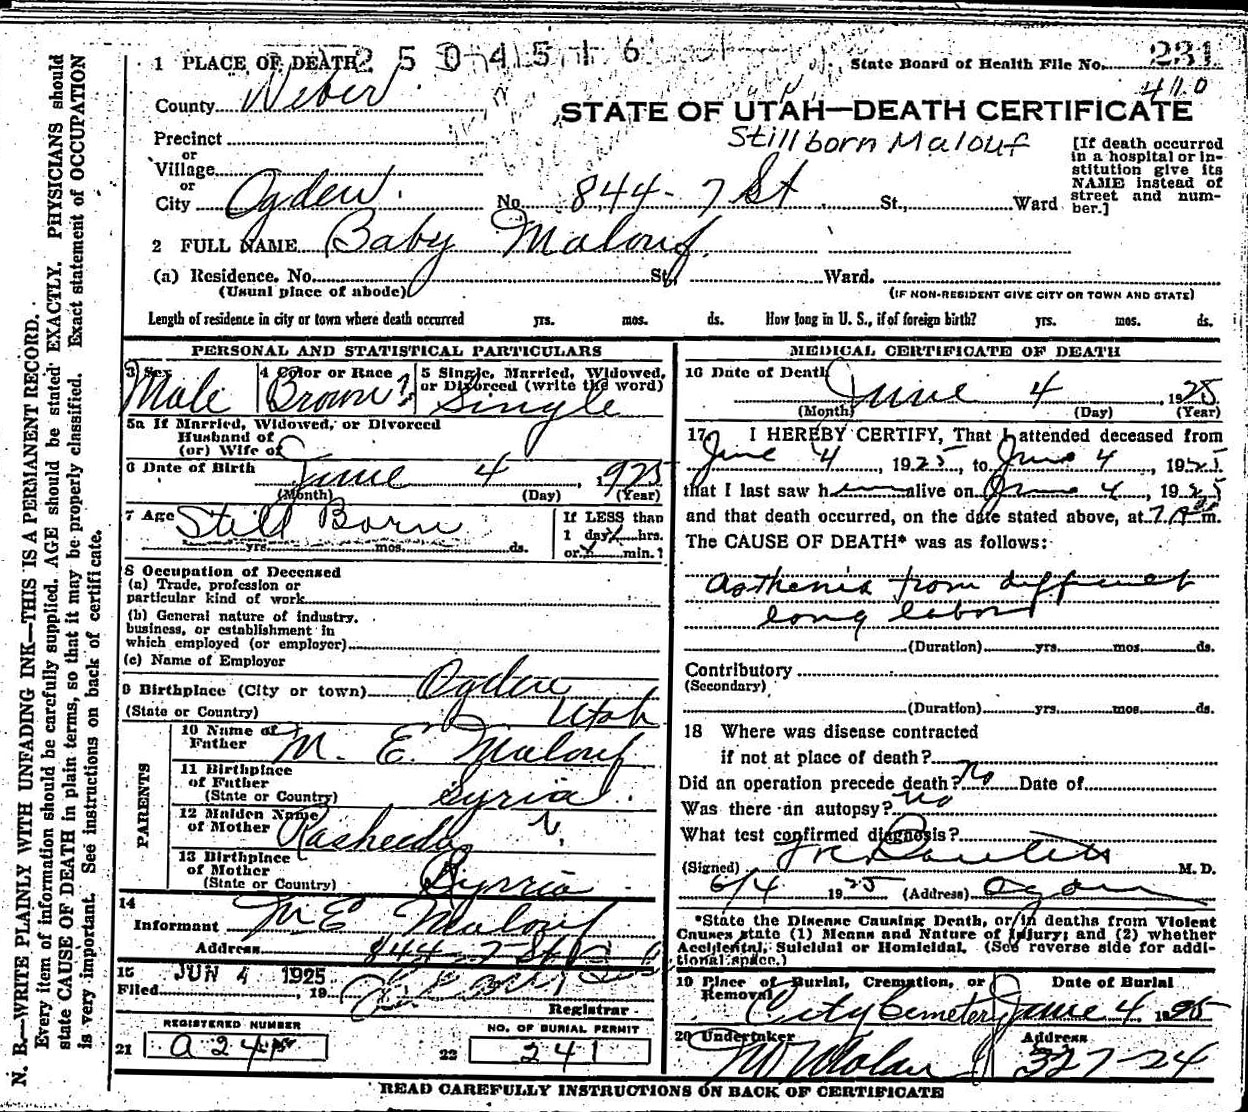 2504516
1 PLACE OF DEATH
State Board of Health File No. 231
410
County Weber
STATE OF UTAH—DEATH CERTIFICATE
Stillborn Malouf
Precinct
or
Village
or
City Ogden No. 844-7 St St., Ward
[If death occurred
in a hospital or in-
stitution give its
NAME instead of
street and num-
ber.]
2 FULL NAME Baby Malouf
(a) Residence. No. St., Ward.
(Usual place of abode) (IF NON-RESIDENT GIVE CITY OR TOWN AND STATE)
Length of residence in city or town where death occurred yrs. mos. ds. How long in U. S., if of foreign birth? yrs. mos. ds.
PERSONAL AND STATISTICAL PARTICULARS
3 Sex Male
4 Color or Race Brown?
5 Single, Married, Widowed,
or Divorced (write the word)
Single
5a If Married, Widowed, or Divorced
Husband of
(or) Wife of
6 Date of Birth June 4, 1925
(Month) (Day) (Year)
7 Age Still Born
yrs. mos. ds.
If LESS than
1 day, hrs.
or min.?
8 Occupation of Deceased
(a) Trade, profession or
particular kind of work
(b) General nature of industry,
business, or establishment in
which employed (or employer)
(c) Name of Employer
9 Birthplace (City or town) Ogden
(State or Country) Utah
PARENTS
10 Name of
Father M. E. Malouf
11 Birthplace
of Father
(State or Country) Syria
12 Maiden Name
of Mother Rasheeda
13 Birthplace
of Mother
(State or Country) Syrria
14
Informant M E Malouf
Address 844-7 St
15 JUN 4 1925
Filed , 19
Registrar
REGISTERED NUMBER
21 a 241
NO. OF BURIAL PERMIT
22 241
MEDICAL CERTIFICATE OF DEATH
16 Date of Death June 4 1925
(Month) (Day) (Year)
17 I HEREBY CERTIFY, That I attended deceased from
June 4, 1925, to June 4, 1925
that I last saw h alive on June 4, 1925
and that death occurred, on the date stated above, at 7 A m.
The CAUSE OF DEATH* was as follows:
Asthenia from difficult
long labor
(Duration) yrs. mos. ds.
Contributory
(Secondary)
(Duration) yrs. mos. ds.
18 Where was disease contracted
if not at place of death?
Did an operation precede death? No Date of
Was there an autopsy? No
What test confirmed diagnosis?
(Signed) M. D.
6/4 1925 (Address) Ogden
*State the Disease Causing Death, or in deaths from Violent
Causes state (1) Means and Nature of Injury; and (2) whether
Accidental, Suicidal or Homicidal. (See reverse side for addi-
tional space.)
19 Place of Burial, Cremation, or
Removal
Date of Burial
City Cemetery June 4, 1925
20 Undertaker Address
327-24
READ CAREFULLY INSTRUCTIONS ON BACK OF CERTIFICATE
N. B.—WRITE PLAINLY WITH UNFADING INK—THIS IS A PERMANENT RECORD.
Every item of information should be carefully supplied. AGE should be stated EXACTLY. PHYSICIANS should
state CAUSE OF DEATH in plain terms, so that it may be properly classified. Exact statement of OCCUPATION
is very important. See instructions on back of certificate.